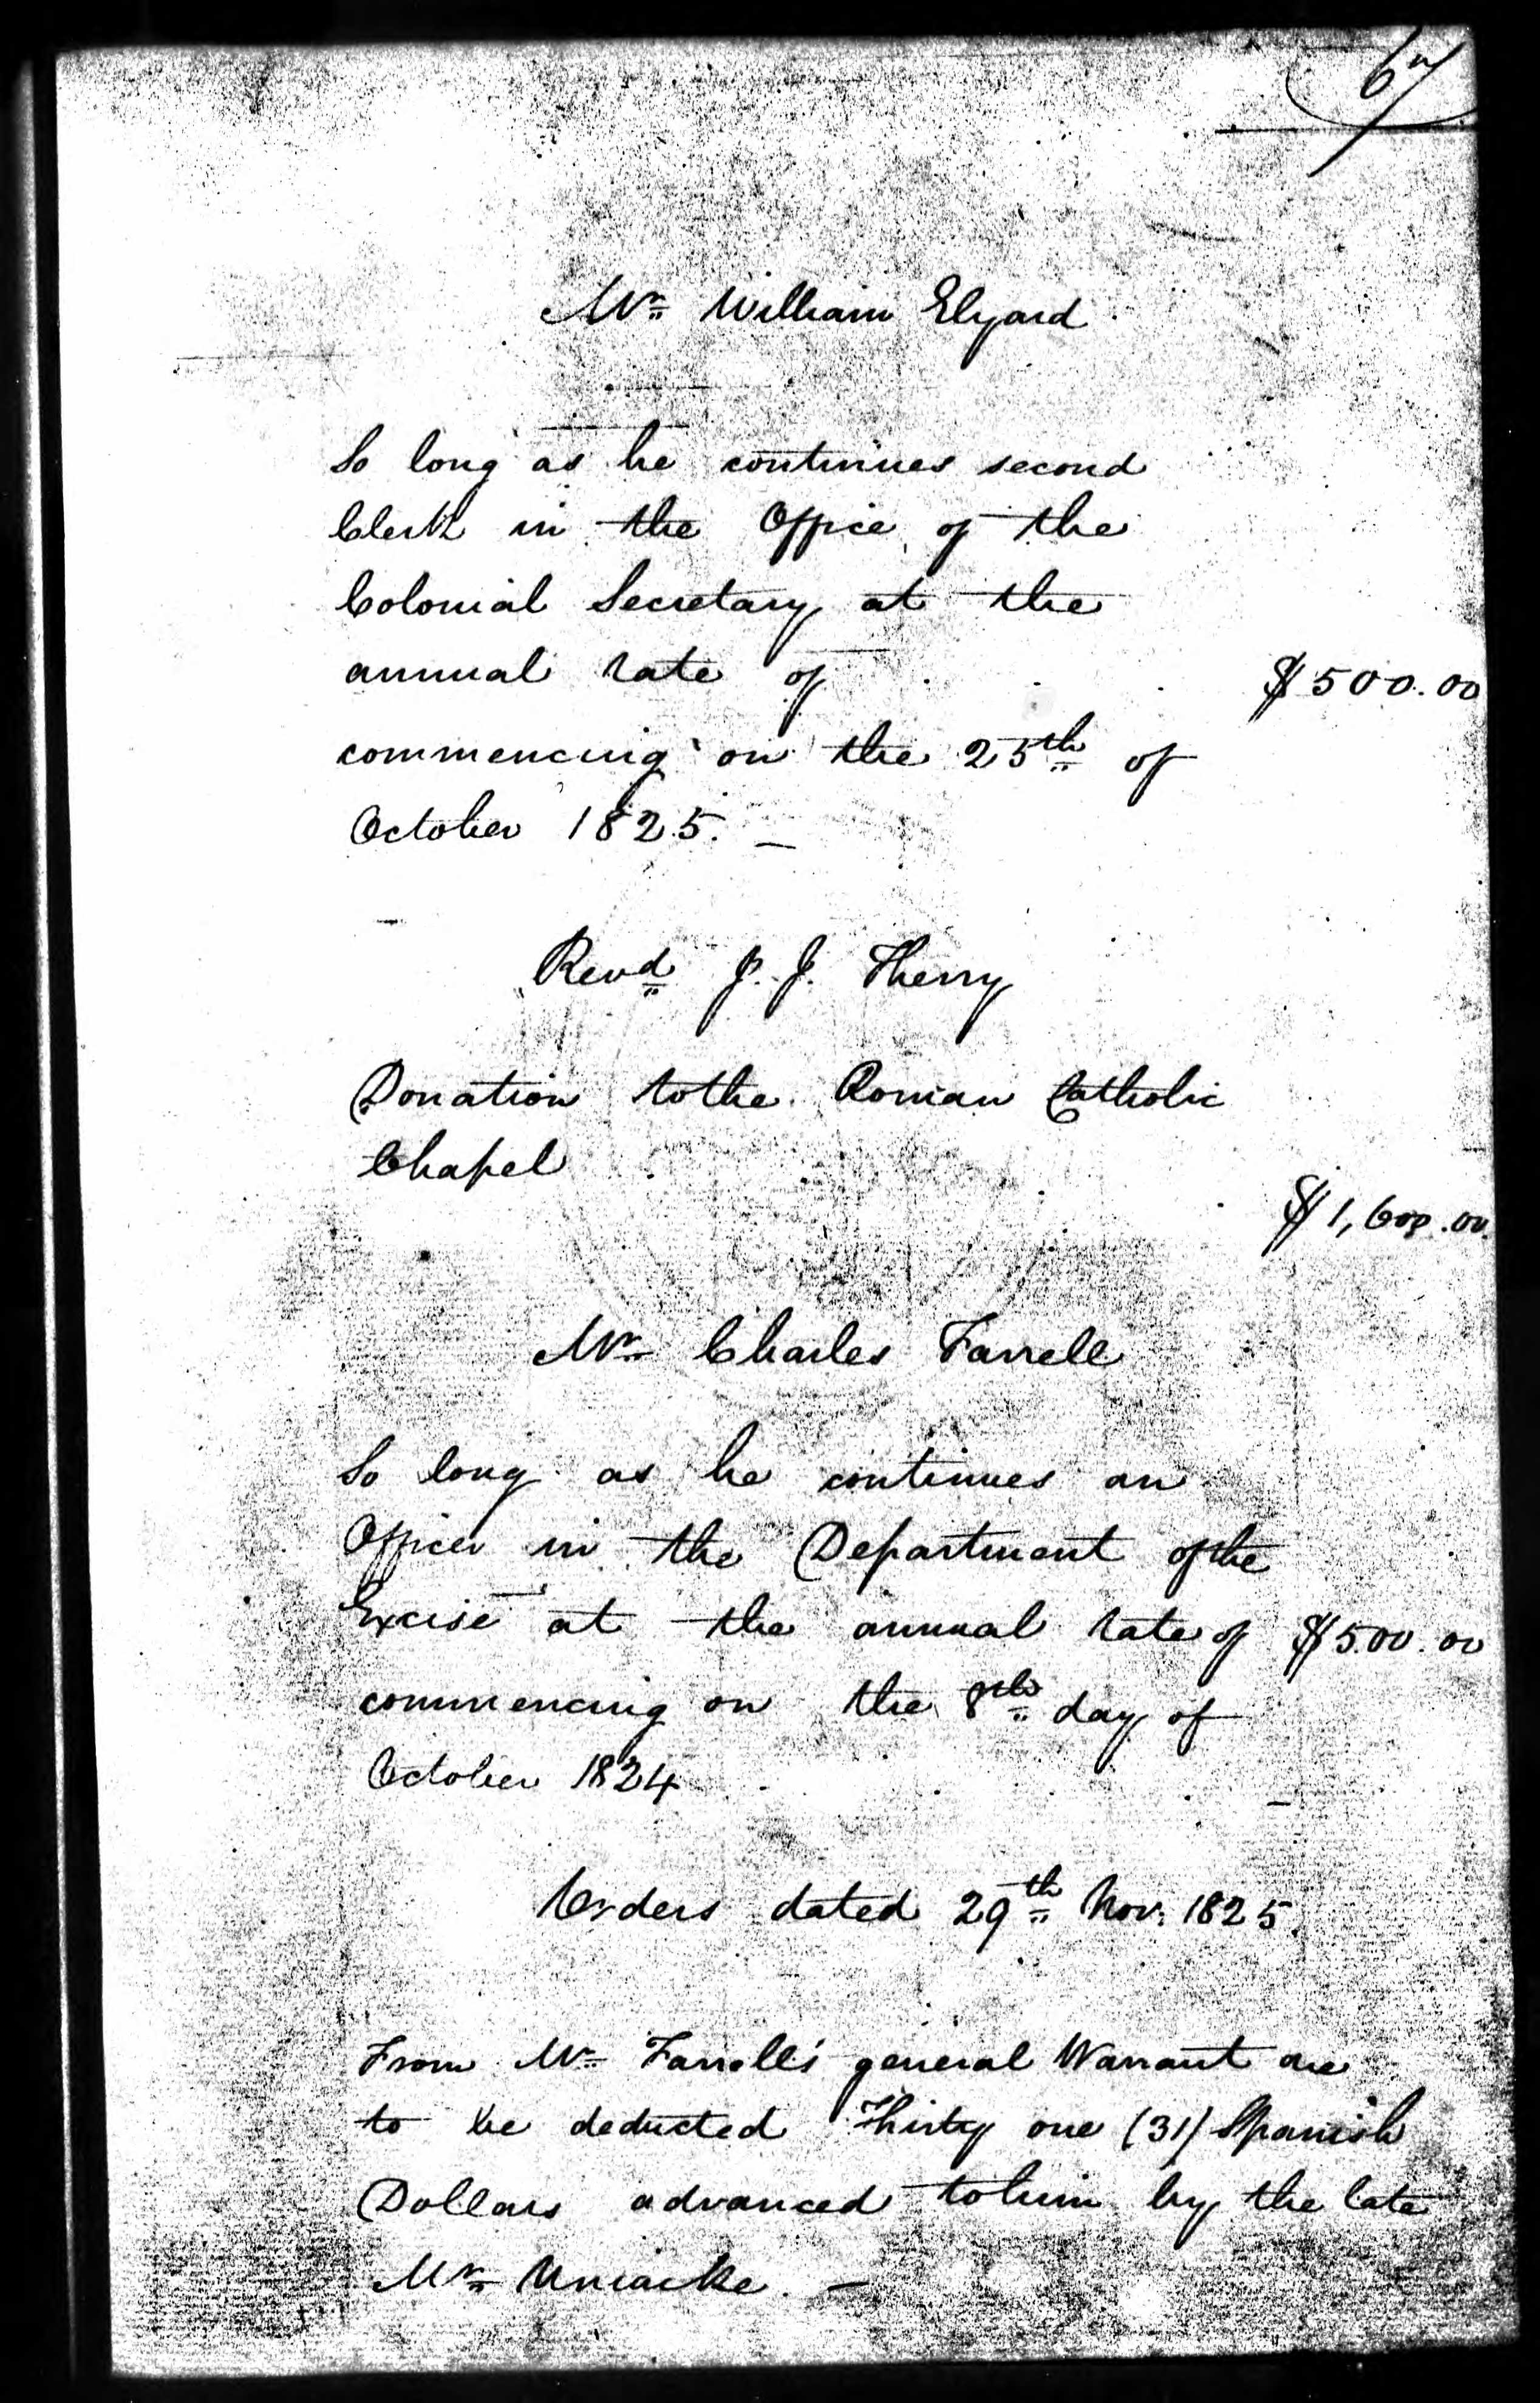 67
Mr William Elyard
So long as he continues second
Clerk in the Office of the
Colonial Secretary at the
annual rate of $500.00
commencing on the 25th of
October 1825. —
Revd J. J. Therry
Donation to the Roman Catholic
Chapel
$1,600.00
Mr Charles Farrell
So long as he continues an
Officer in the Department of the
Excise at the annual rate of $500.00
commencing on the 8th day of
October 1824
Orders dated 29th Nov. 1825
From Mr Farrell's general Warrant are
to be deducted Thirty one (31) Spanish
Dollars advanced to him by the late
Mr Uniacke. —